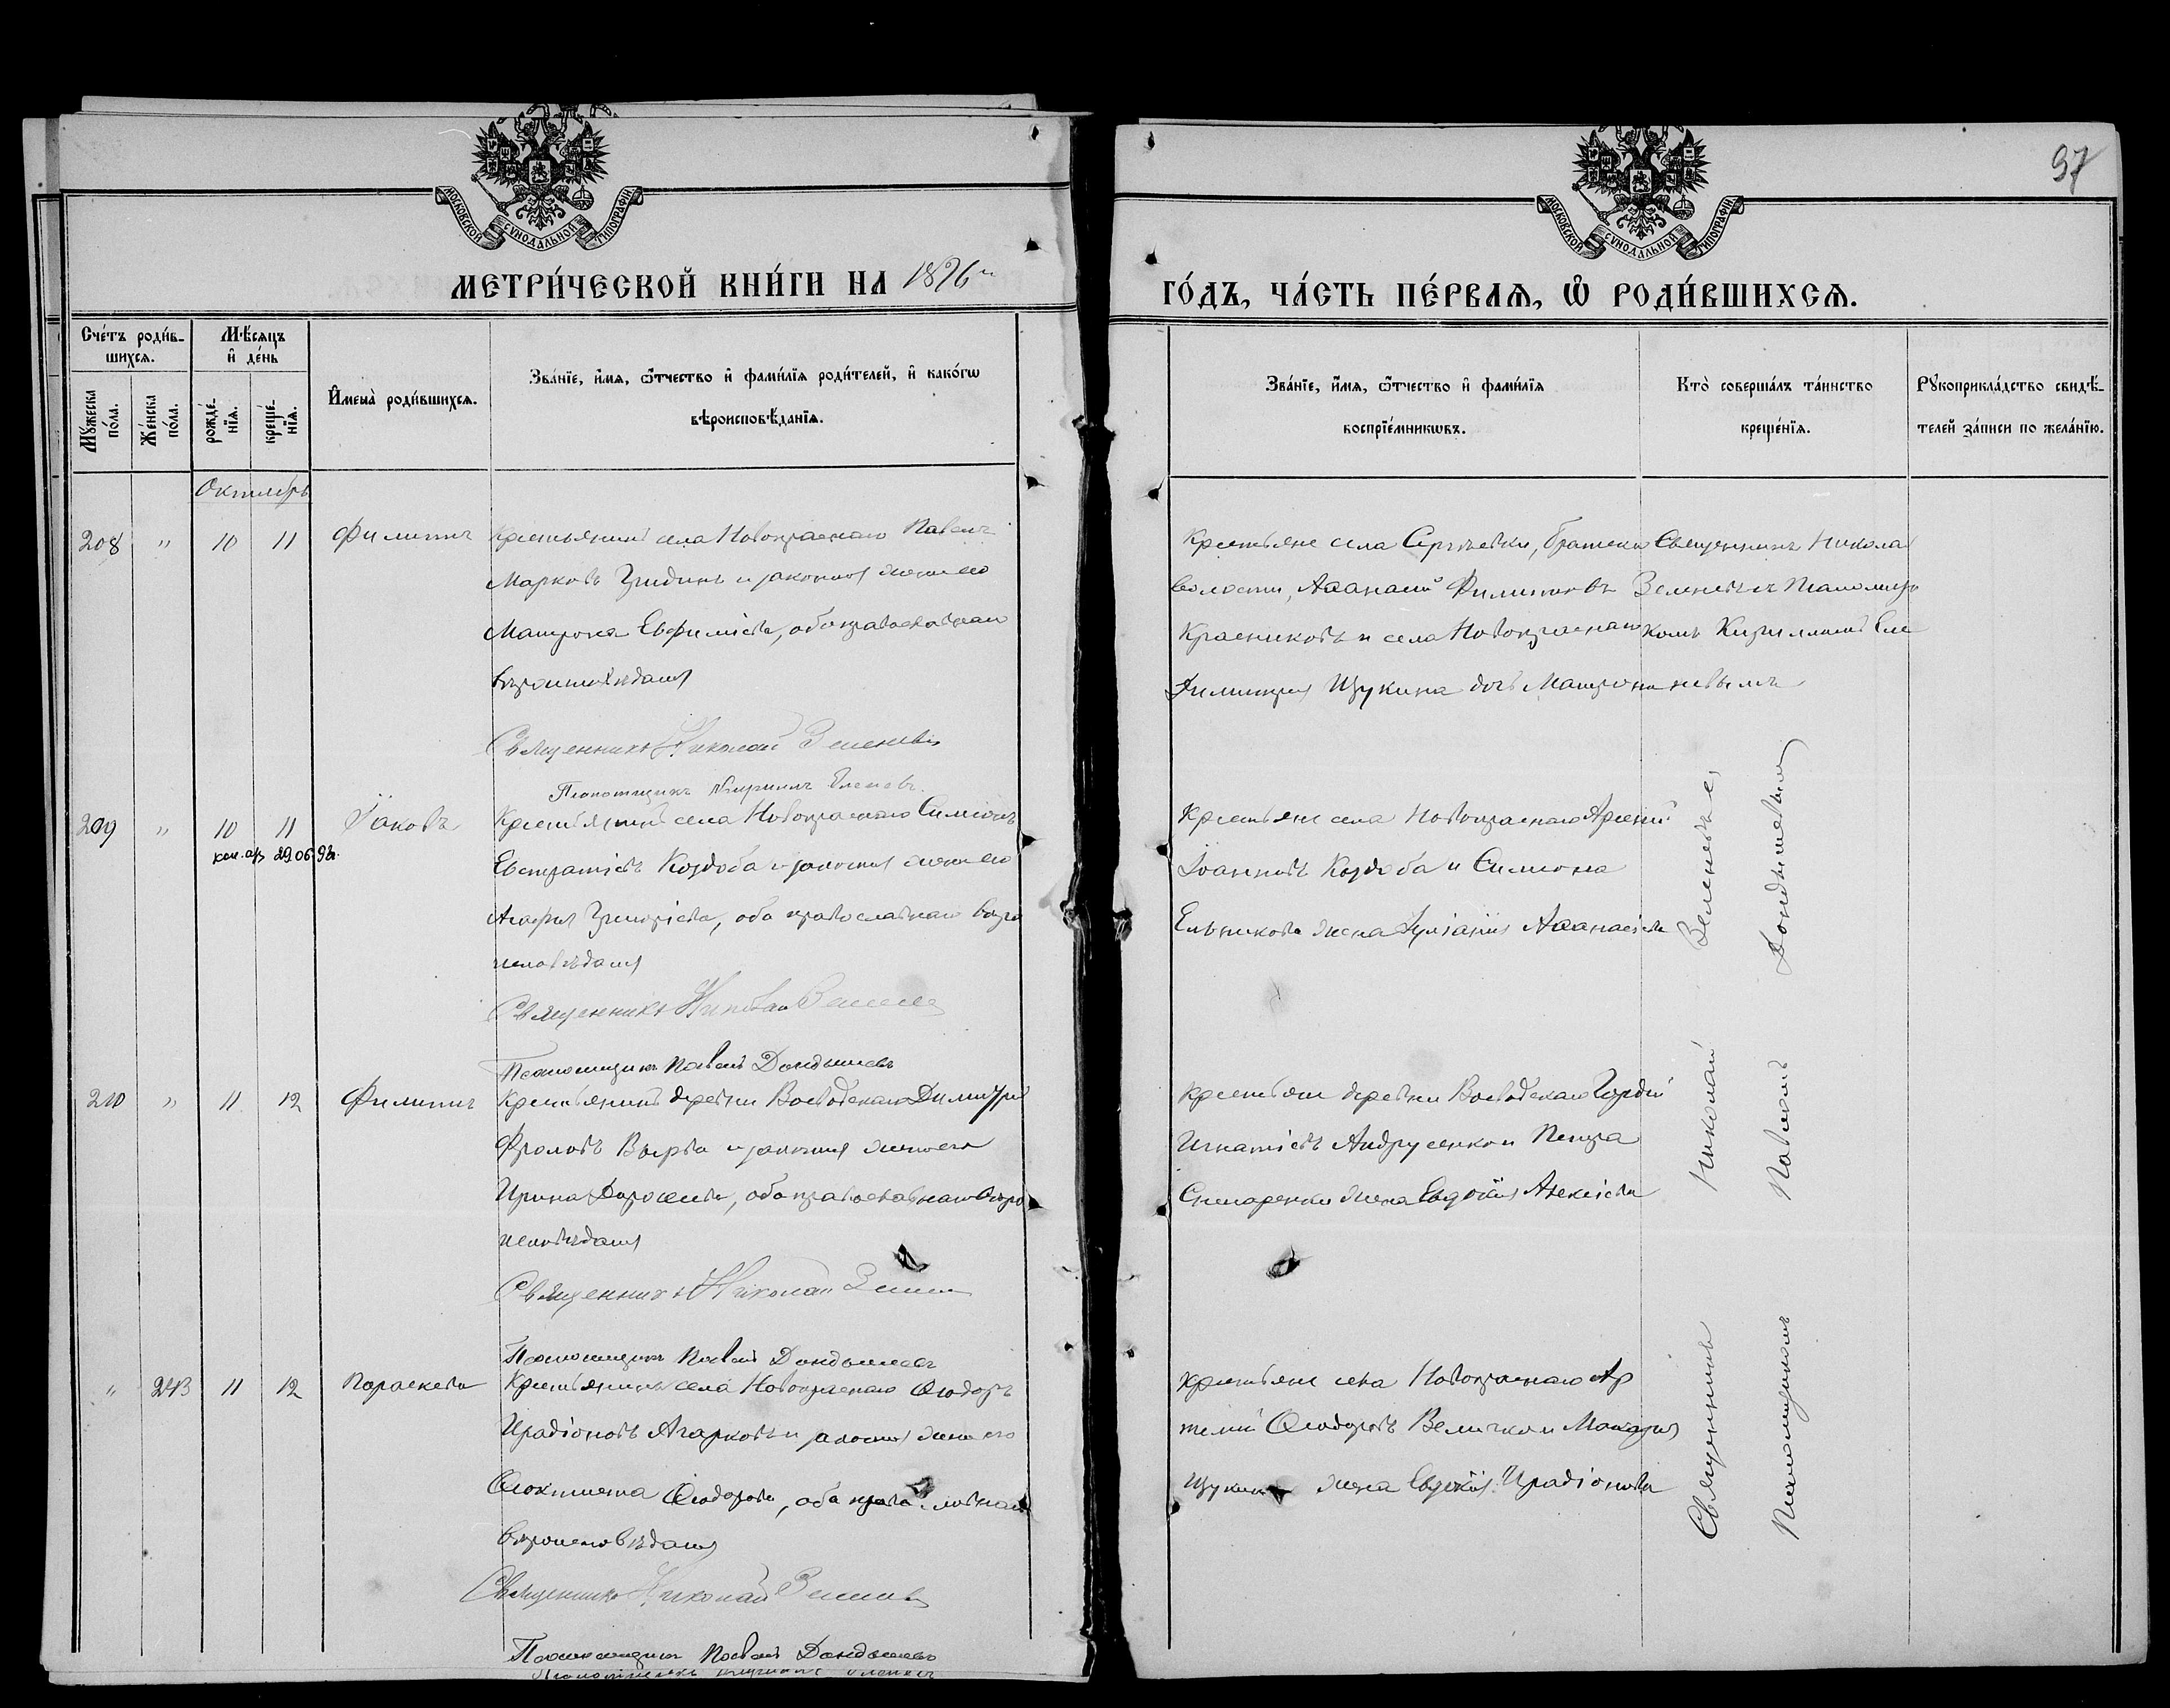 97
МОСКОВСКОЙ СѴНОДАЛЬНОЙ ТИПОГРАФІИ
МОСКОВСКОЙ СѴНОДАЛЬНОЙ ТИПОГРАФІИ
МЕТРИ́ЧЕСКОЙ КНИ́ГИ НА 1896
ГО́ДЪ, ЧА́СТЬ ПЕ́РВАѦ, Ѽ РОДИ́ВШИХСѦ.
Сче́тъ роди́в-
шихсѧ.
Мꙋ́жеска по́ла.
Же́нска по́ла.
Мѣ́сѧцъ
и҆ де́нь
рожде́-
нїѧ.
креще́-
нїѧ.
И҆мена̀ роди́вшихсѧ.
Зва́нїе, и҆́мѧ, ѻ҆́тчество и҆ фами́лїѧ роди́телей, и҆ како́гѡ
вѣроисповѣ́данїѧ.
Зва́нїе, и҆́мѧ, ѻ҆́тчество и҆ фами́лїѧ
воспрїе́мникѡвъ.
Кто̀ соверша́лъ та́инство
креще́нїѧ.
Рꙋкоприкла́дство свидѣ́-
телей за́писи по жела́нїю.
Октябрь
208 " 10 11 Филиппъ Крестьянинъ села Новокраснаго Павелъ
Марковъ Гридинъ и законная жена его
Матрона Евфиміева, оба православнаго
вѣроисповѣданія
Священникъ Николай Зеленевъ
Псаломщикъ Кириллъ Еленевъ
Крестьяне села Сергѣевки, Братской
волости, Аѳанасій Филипповъ
Красниковъ и села Новокраснаго
Димитрія Щукина дочь Матрона
Священникъ Николай
Зеленевъ съ Псаломщи
комъ Кирилломъ Еле
невымъ
209 " 10 11 Іаковъ Крестьянинъ села Новокраснаго Симеонъ
коп. 29.06.92г.
Евстратіевъ Коздоба и законная жена его
Агафія Григоріева, оба православнаго вѣро
исповѣданія
Священникъ Николай
Псаломщикъ Павелъ Дондышевъ
Крестьяне села Новокраснаго Арсеній
Іоанновъ Коздоба и Симеона
Ельникова жена Іуліанія Аѳанасіева
210 " 11 12 Филиппъ Крестьянинъ деревни Воеводскаго Димитрій
Фроловъ Вырва и законная жена его
Ирина Дороѳеева, оба православнаго вѣро
исповѣданія
Священникъ Николай
Псаломщикъ Павелъ Дондышевъ
Крестьяне деревни Воеводскаго Гордій
Игнатіевъ Андрусенко и Петра
жена Евдокія Алексіева
" 213 11 12 Параскева Крестьянинъ села Новокраснаго Ѳеодоръ
Иродіоновъ Агарковъ и законная жена его
Ѳеоктиста Ѳеодорова, оба православнаго
вѣроисповѣданія
Священникъ Николай
Псаломщикъ Павелъ Дондышевъ
Крестьяне села Новокраснаго Ар
темій Ѳеодоровъ Величко и Макарія
Щукина жена Евдокія Иродіонова
Священникъ Николай Зеленевъ,
Псаломщикомъ Павломъ Дондышевымъ